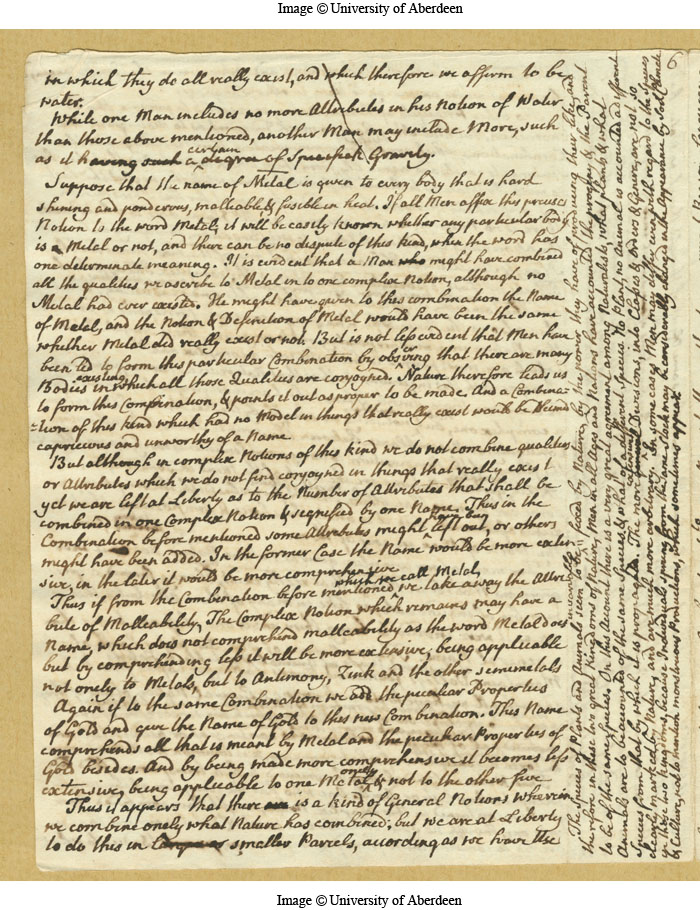 Image © University of Aberdeen
6
in which they do all really exist, and which therefore we affirm to be
water.
While one Man includes no more Attributes in his Notion of Water
than those above mentioned, another Man may include More, such
as it having such a certain degree of Specifick Gravity.
Suppose that the name of Metal is given to every body that is hard
shining and ponderous, malleable & fusible in heat. If all Men affix this precise
Notion to the word Metal; it will be easily known whether any particular body
is a Metal or not, and there can be no dispute of this kind, when the word has
one determinate meaning. It is evident that a Man who might have combined
all the qualities we ascribe to Metal in to one complex Notion, although no
Metal had ever existed. He might have given to this combination the Name
of Metal, and the Notion & Definition of Metal would have been the same
whether Metal did really exist or not. But is not less evident that Men have
been led to form this particular Combination by observing that there are many
Bodies existing in which all those Qualities are conjoyned. Nature therefore leads us
to form this Combination, & points it out as proper to be made. And a Combina-
-tion of this kind which had no Model in things that really exist would be
capricious and unworthy of a Name.
But although in complex Notions of this kind we do not combine qualities
or Attributes which we do not find conjoyned in things that really exist
yet we are left at Liberty as to the Number of Attributes that shall be
combined in one Complex Notion & signified by one Name. Thus in the
Combination before mentioned some Attributes might left out, or others
might have been added. In the former Case the Name would be more exten
sive, in the later it would be more comprehensive
Thus if from the Combination before mentioned which we call Metal, we take away the Attri
bute of Malleability, The Complex Notion which remains may have a
Name, which does not comprehend malleability as the word Metal does
but by comprehending less it will be more extensive, being applicable
not onely to Metals, but to Antimony, Zink and the other semimetals
Again if to the same Combination we add the peculiar Properties
of Gold and give the Name of Gold to this new Combination. This Name
comprehends all that is meant by Metal and the peculiar Properties of
Gold besides. And by being made more comprehensive it becomes less
extensive, being applicable to one Metal onely & not to the other five
Thus it appears that there is a kind of General Notions wherein
we combine onely what Nature has combined; but we are at Liberty
to do this in smaller Parcels, according as we have the
The Species of Plants and Animals seem to be fixed by Nature, by the power they have of producing their like, and
therefore in these two great Kingdoms of Nature, Men in all Ages and Nations have accounted the progeny & the Parent
to be of the same Species. On this account there is a very great agreement among Naturalists, what Plants & what
Animals are to be accounted of the same Species, & what of a different Species. No Plant, no Animal is accounted a different
Species from that by which it is propagated. The more Divisions, into Classes & Orders & Genera, are not so
clearly marked by Nature, and are much more arbitrary. In some cases Men may differ even with regard to the Species
in these two kingdoms, because Individuals sprung from the same stock may be considerably changed in the Appearance by Soil, Climate
& Culture, not to mention monstruous Productions, which sometimes appear.
Image © University of Aberdeen